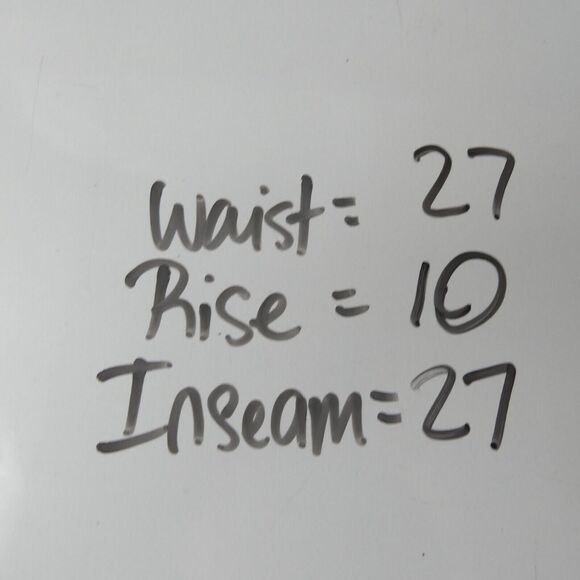 Waist = 27
Rise = 10
Inseam = 27